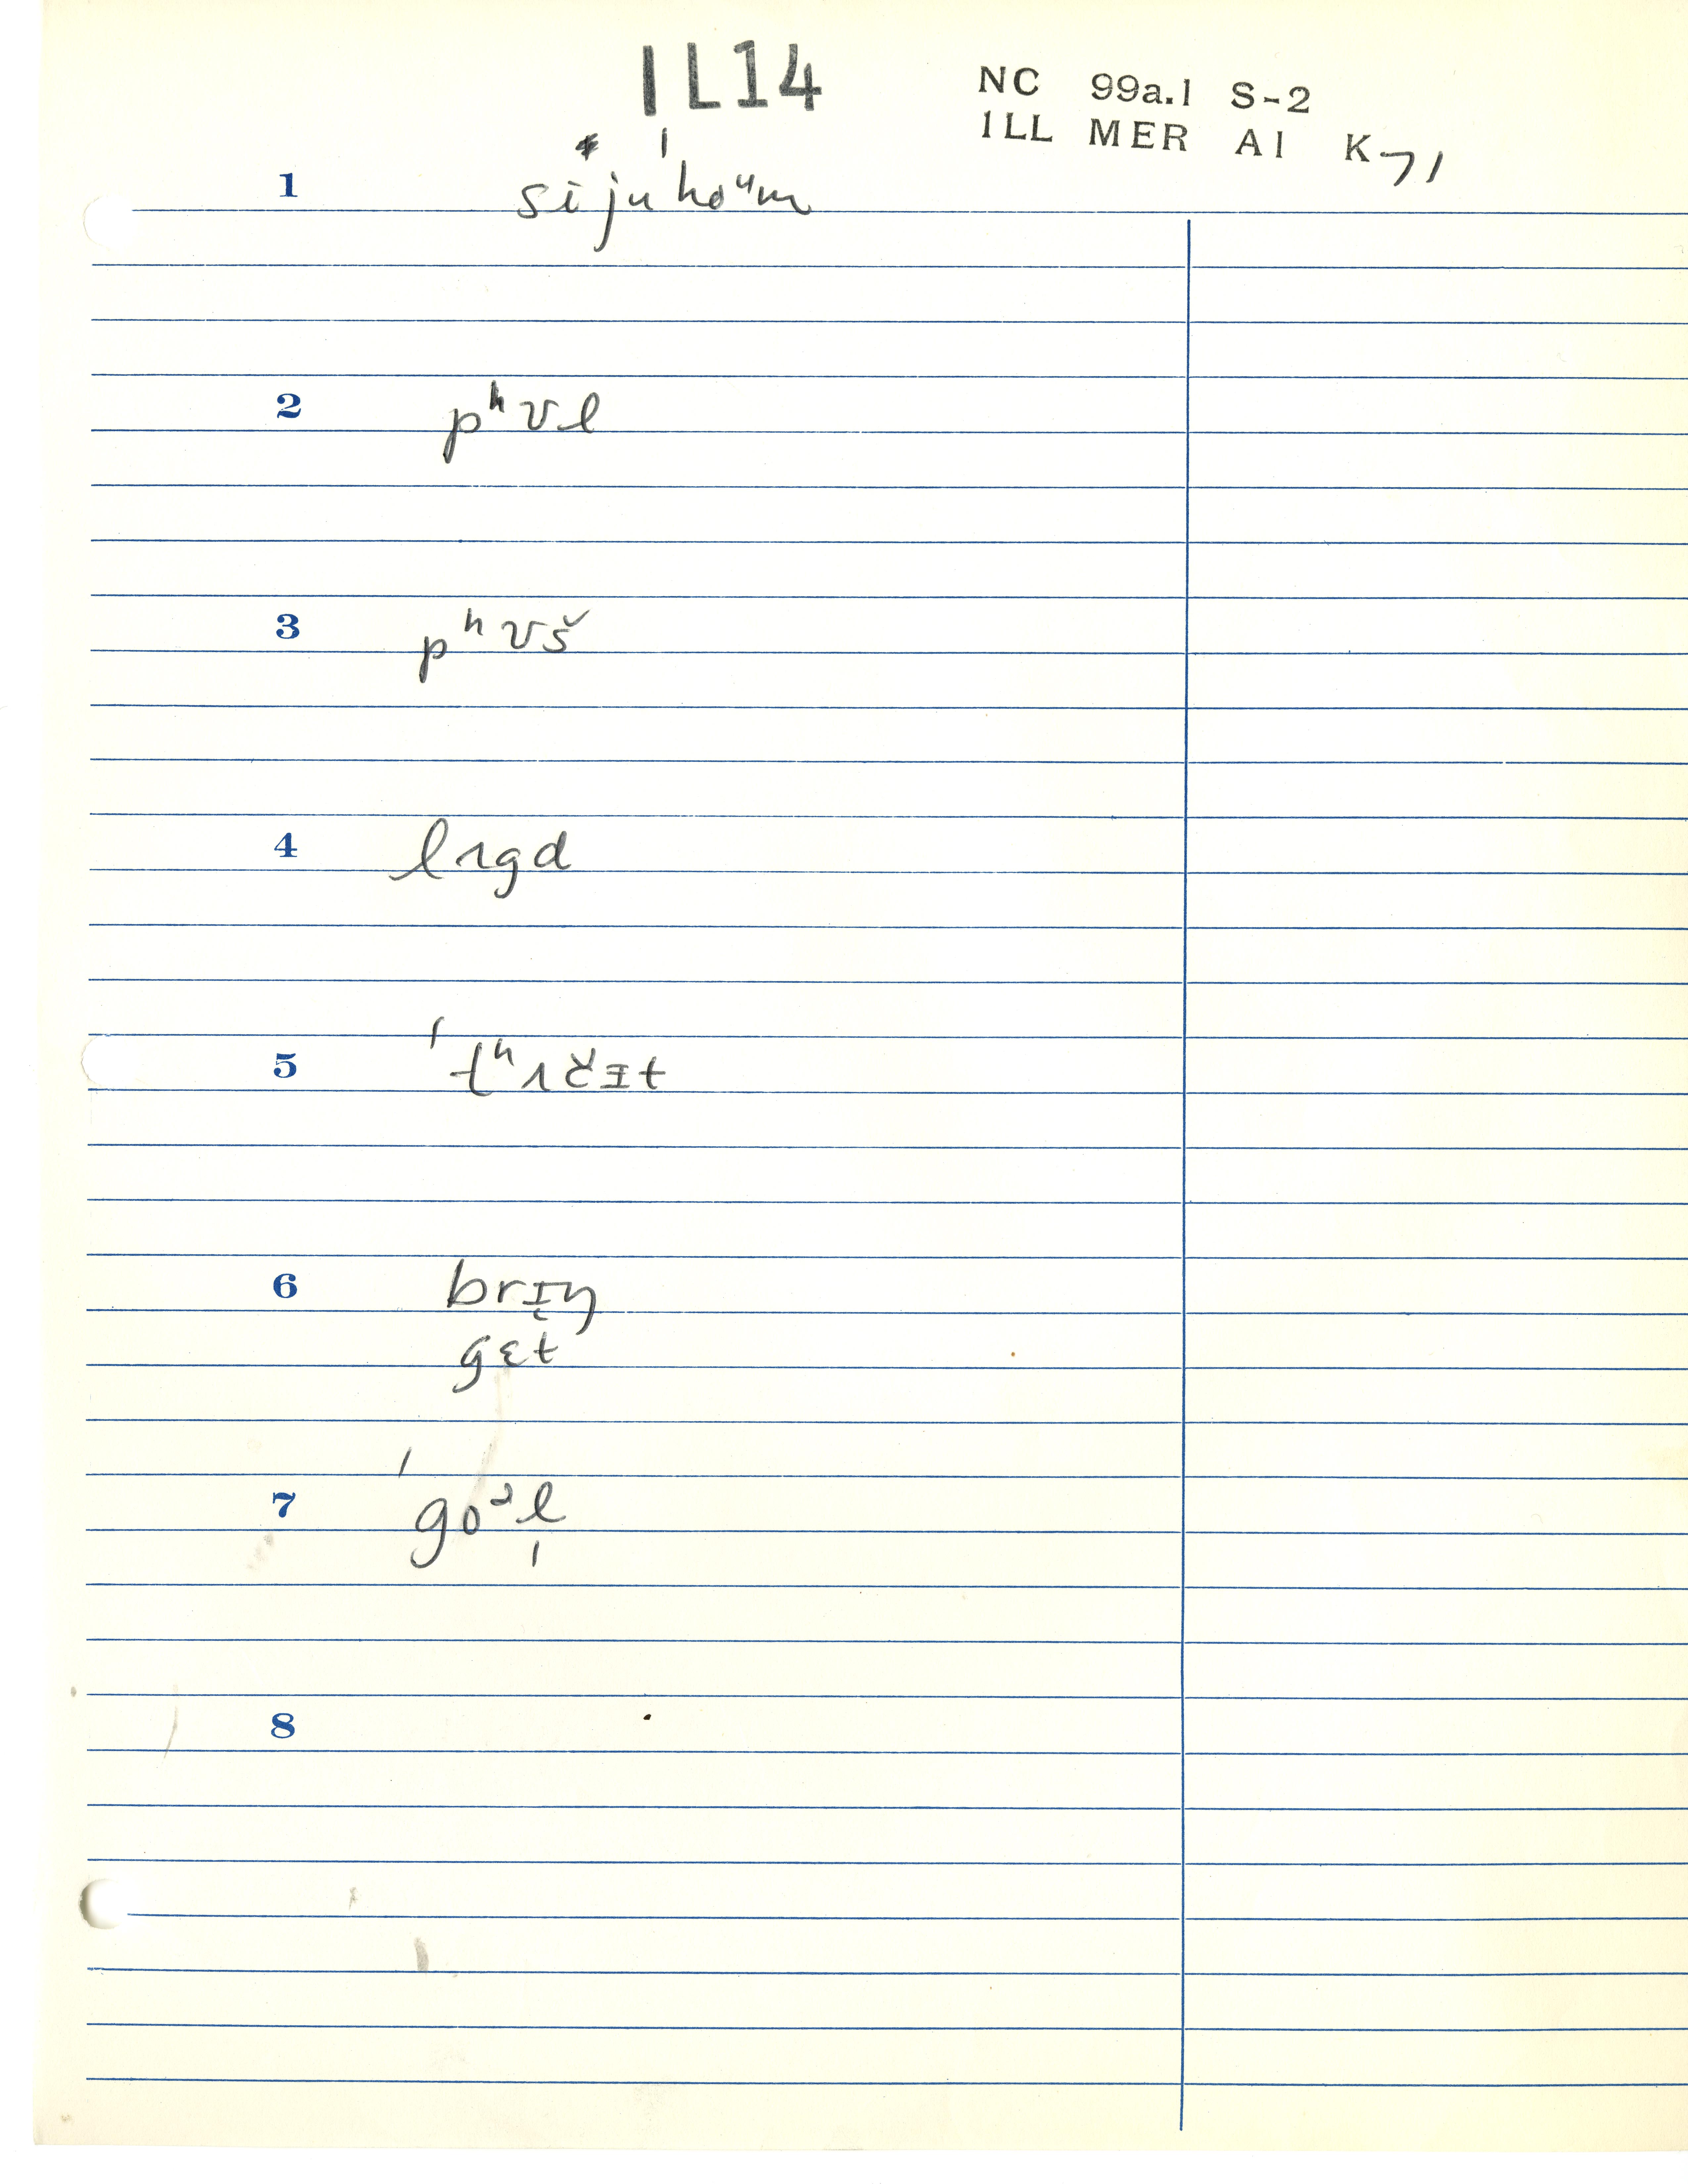 IL14
NC 99a.1 S-2
ILL MER A1 K71
1 si ju hoᵘm
2 pʰʊl
3 pʰʊš
4 lʌgd
5 ˈtʰʌčɪt
6 brɪŋ
gɛt
7 ˈgoᵊl̩
8